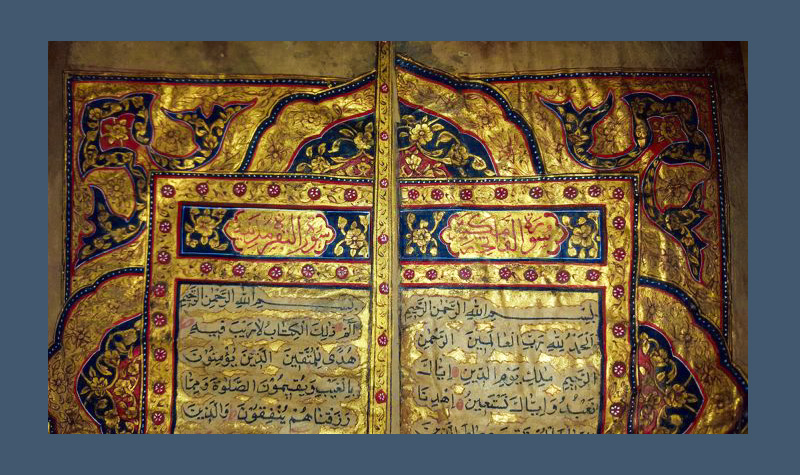 سورة الفاتحة مكية
بسم الله الرحمن الرحيم
الحمد لله رب العالمين الرحمن
الرحيم ملك يوم الدين اياك
نعبد واياك نستعين اهدنا
سورة البقرة مدنية
بسم الله الرحمن الرحيم
الم ذلك الكتاب لا ريب فيه
هدى للمتقين الذين يؤمنون
بالغيب ويقيمون الصلوة ومما
رزقناهم ينفقون والذين